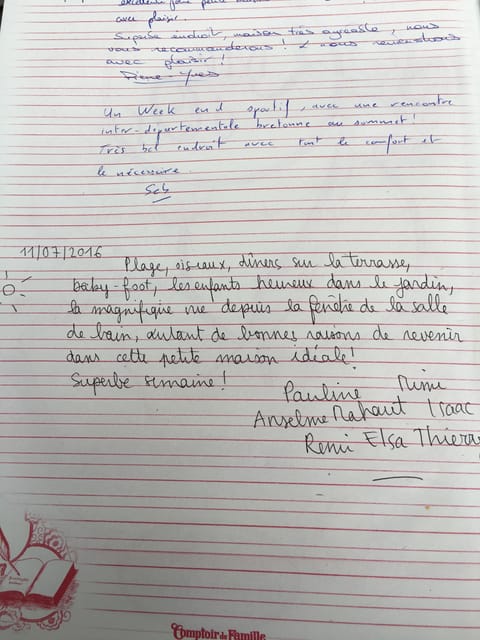 avec plaisir.
Superbe endroit, maison très agréable, nous
vous recommanderons ! & nous reviendrons
avec plaisir !
Pierre-Yves
Un Week end sportif, avec une rencontre
inter-départementale bretonne au sommet !
Très bel endroit avec tout le confort et
le nécessaire.
Seb
11/07/2016
Plage, oiseaux, dîners sur la terrasse,
baby-foot, les enfants heureux dans le jardin,
la magnifique vue depuis la fenêtre de la salle
de bain, autant de bonnes raisons de revenir
dans cette petite maison idéale !
Superbe semaine !
Pauline Mimi
Anselme Mahaut Isaac
Remi Elsa Thierry
Comptoir de Famille